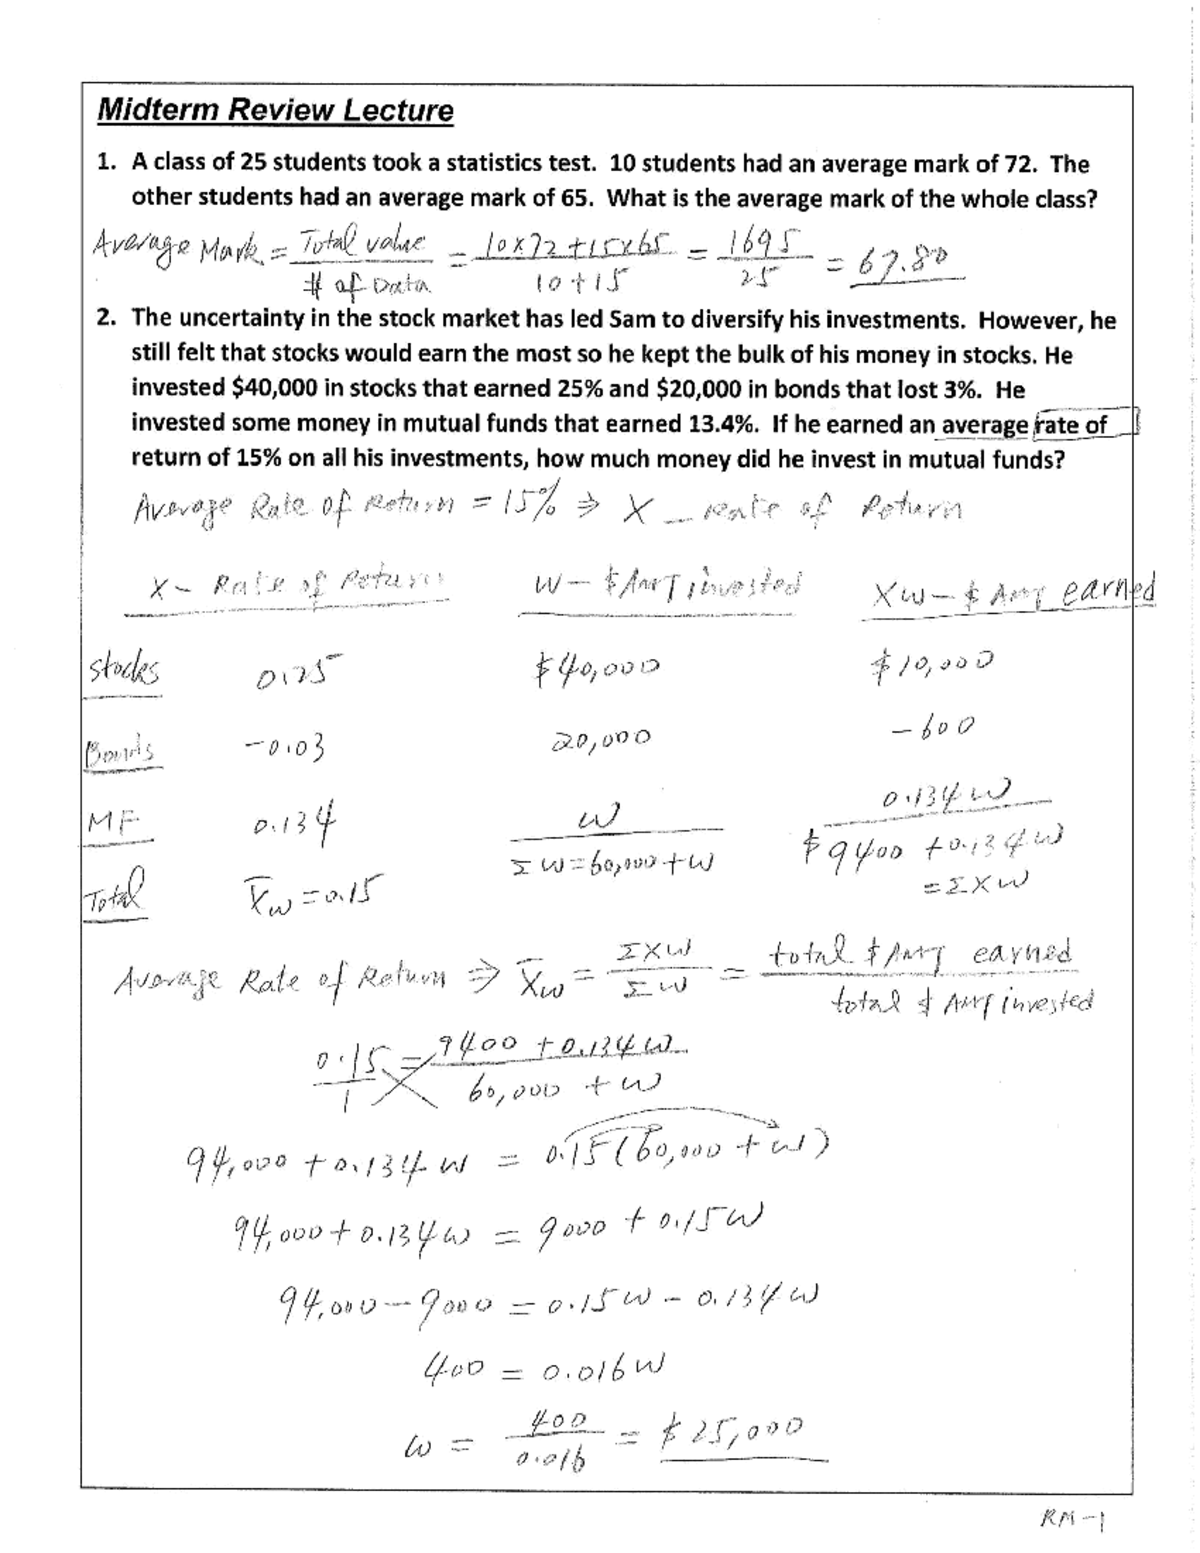 Midterm Review Lecture
1. A class of 25 students took a statistics test. 10 students had an average mark of 72. The
other students had an average mark of 65. What is the average mark of the whole class?
Average Mark = Total value / # of Data = 10x72+15x65 / 10+15 = 1695 / 25 = 67.80
2. The uncertainty in the stock market has led Sam to diversify his investments. However, he
still felt that stocks would earn the most so he kept the bulk of his money in stocks. He
invested $40,000 in stocks that earned 25% and $20,000 in bonds that lost 3%. He
invested some money in mutual funds that earned 13.4%. If he earned an average rate of
return of 15% on all his investments, how much money did he invest in mutual funds?
Average Rate of Return = 15% ⇒ X – Rate of Return
X – Rate of Return W – $ AMT invested XW – $ AMT earned
Stocks 0.25 $40,000 $10,000
Bonds -0.03 20,000 -600
MF 0.134 W 0.134W
Σ W = 60,000 + W $9400 + 0.134W
Total X̄w = 0.15 = ΣXW
Average Rate of Return ⇒ X̄w = ΣXW / ΣW = total $ AMT earned / total $ AMT invested
0.15 / 1 = 9400 + 0.134W / 60,000 + W
94,000 + 0.134W = 0.15(60,000 + W)
94,000 + 0.134W = 9000 + 0.15W
94,000 - 9000 = 0.15W - 0.134W
400 = 0.016W
W = 400 / 0.016 = $25,000
RM-1